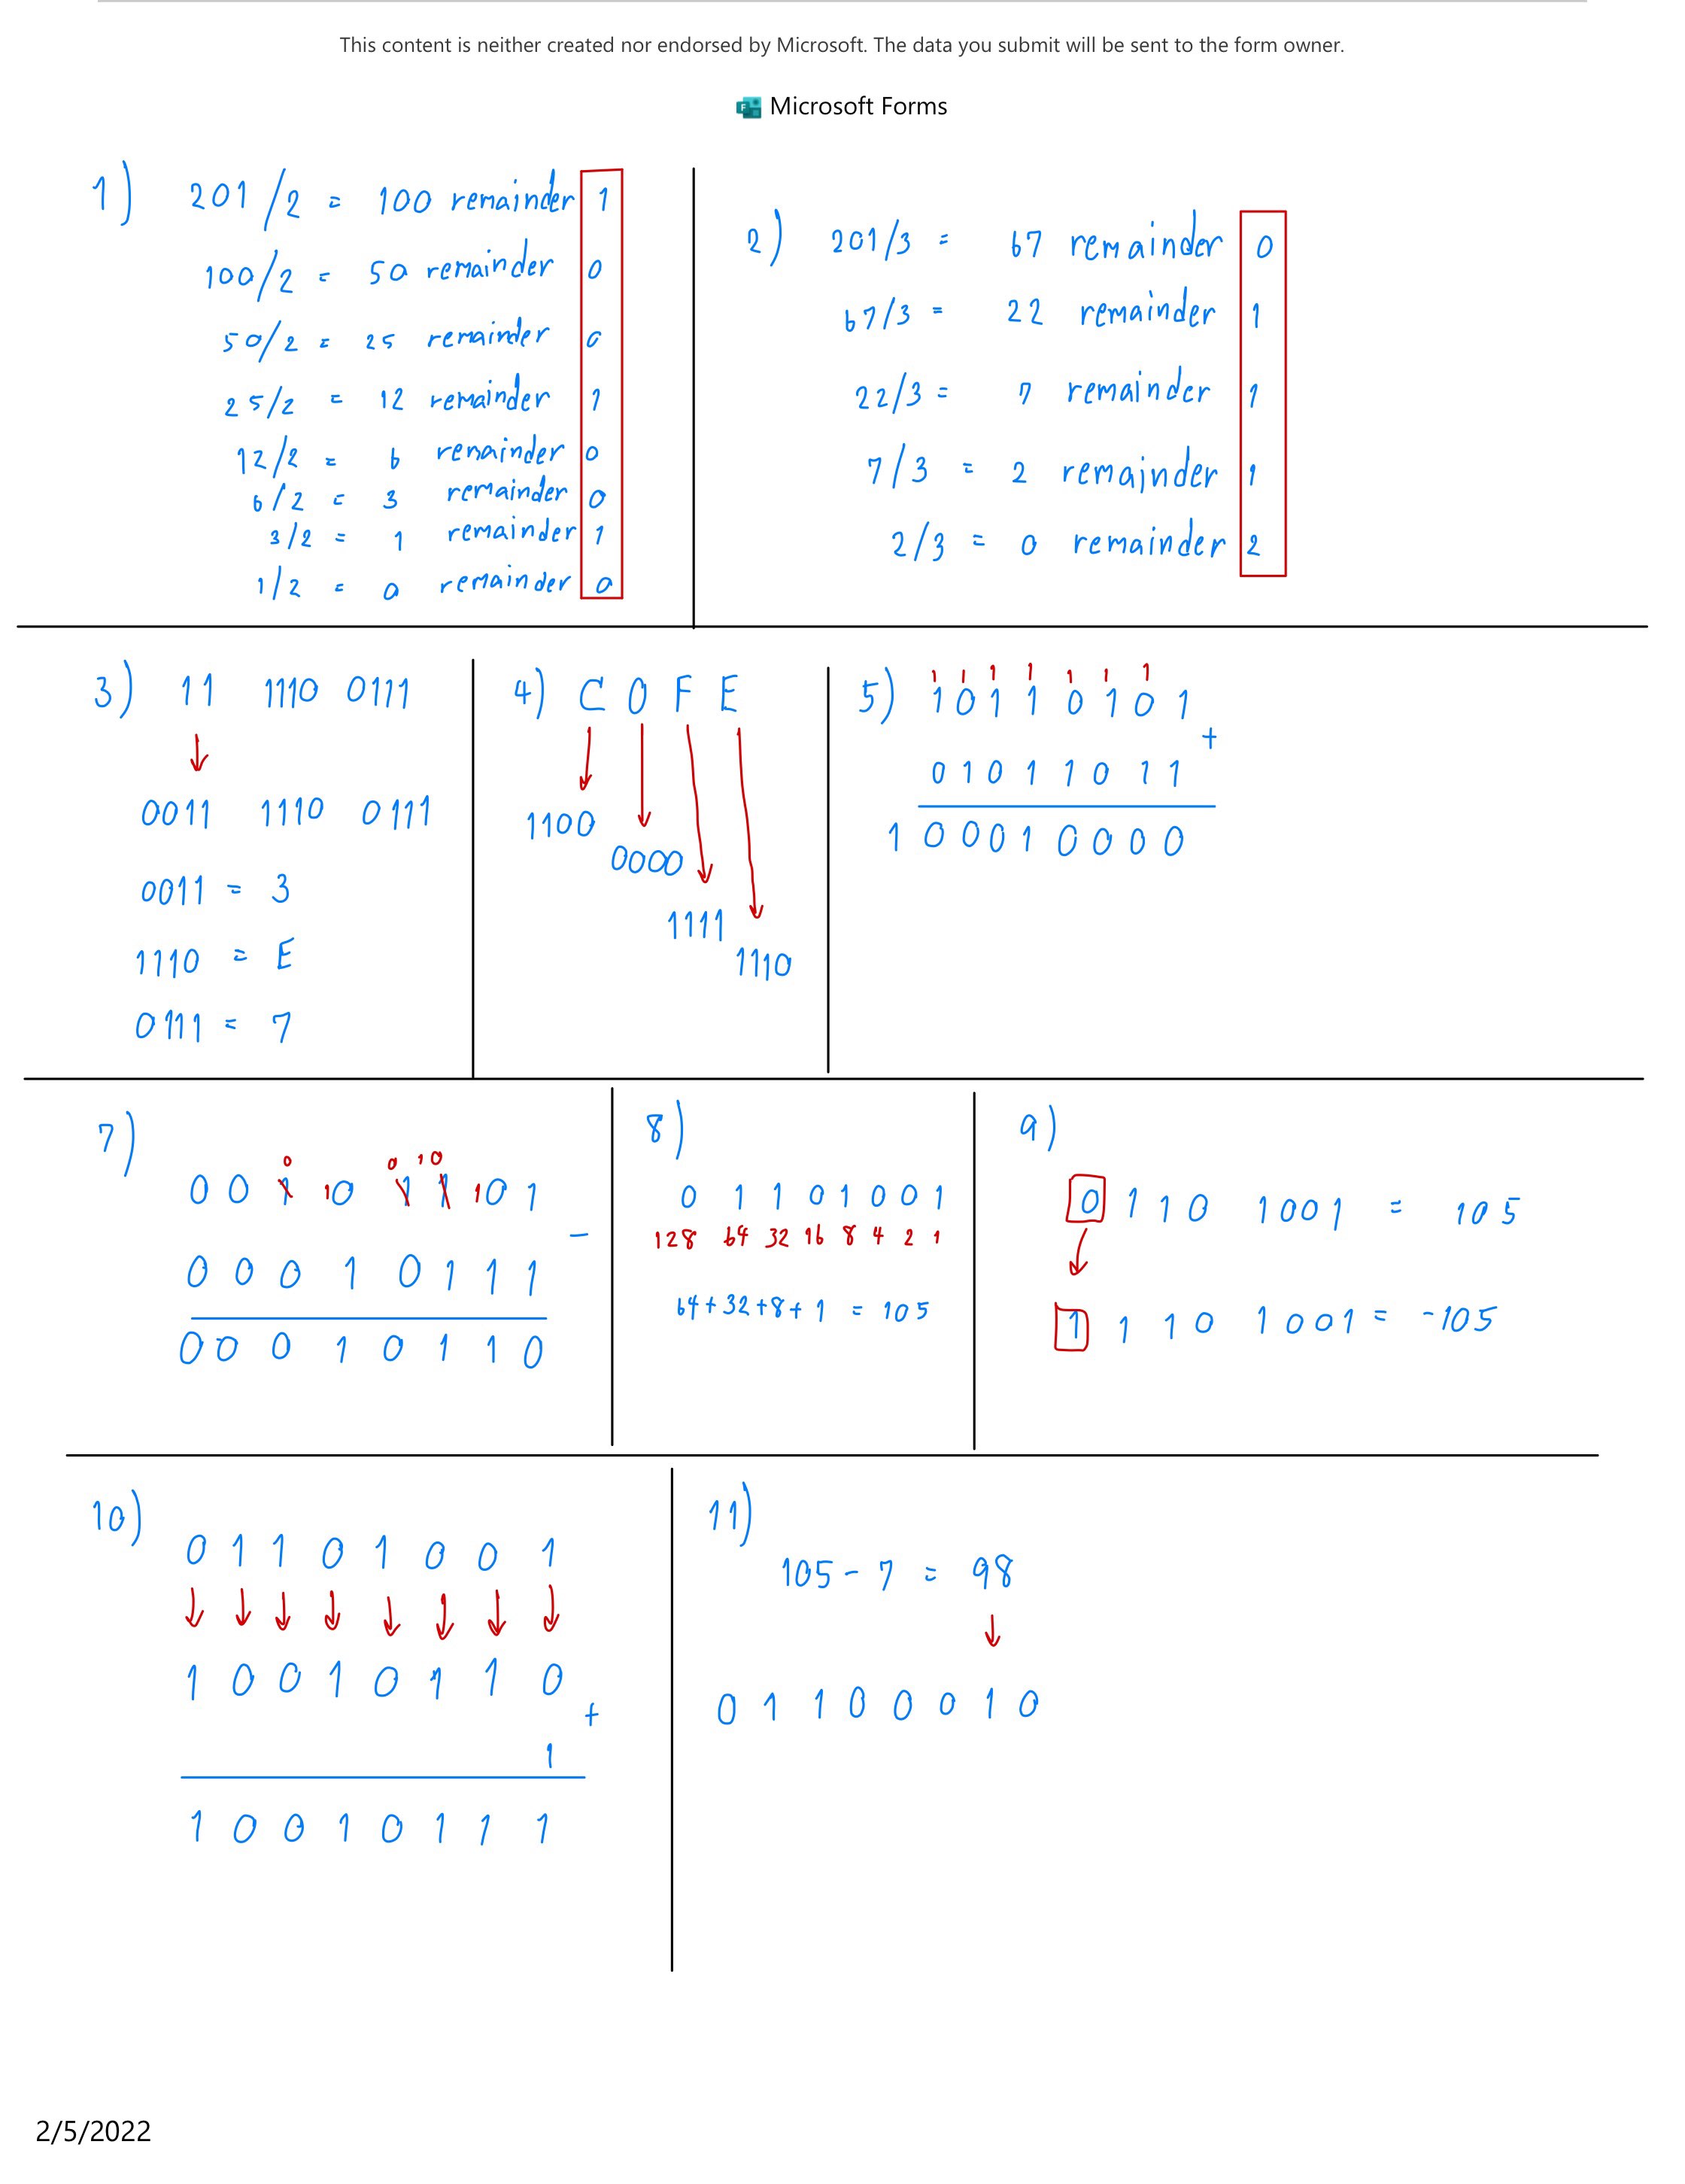 This content is neither created nor endorsed by Microsoft. The data you submit will be sent to the form owner.
Microsoft Forms
1) 201/2 = 100 remainder 1
100/2 = 50 remainder 0
50/2 = 25 remainder 0
25/2 = 12 remainder 1
12/2 = 6 remainder 0
6/2 = 3 remainder 0
3/2 = 1 remainder 1
1/2 = 0 remainder 0
2) 201/3 = 67 remainder 0
67/3 = 22 remainder 1
22/3 = 7 remainder 1
7/3 = 2 remainder 1
2/3 = 0 remainder 2
3) 11 1110 0111
0011 1110 0111
0011 = 3
1110 = E
0111 = 7
4) C 0 F E
1100
0000
1111
1110
5) 1 1 1 1 1 1 1
1 0 1 1 0 1 0 1
+
0 1 0 1 1 0 1 1
1 0 0 0 1 0 0 0 0
7)
0 0 10
0 0 1 10 1 1 10 1
-
0 0 0 1 0 1 1 1
0 0 0 1 0 1 1 0
8)
0 1 1 0 1 0 0 1
128 64 32 16 8 4 2 1
64 + 32 + 8 + 1 = 105
9)
0 1 1 0 1001 = 105
1 1 1 0 1001 = -105
10)
0 1 1 0 1 0 0 1
1 0 0 1 0 1 1 0
+
1
1 0 0 1 0 1 1 1
11)
105 - 7 = 98
0 1 1 0 0 0 1 0
2/5/2022